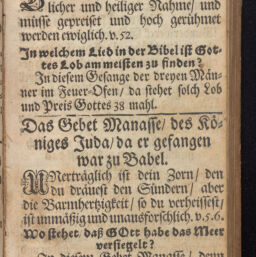 licher und heiliger Nahme/ und
müsse gepreiset und hoch gerühmet
werden ewiglich. v. 52.
In welchem Lied in der Bibel ist Got-
tes Lob am meisten zu finden?
In diesem Gesange der dreyen Män-
ner im Feuer-Ofen/ da stehet solch Lob
und Preis Gottes 38 mahl.
Das Gebet Manasse/ des Kö-
niges Juda/ da er gefangen
war zu Babel.
UNerträglich ist dein Zorn/ den
du dräuest den Sündern/ aber
die Barmhertzigkeit/ so du verheissest/
ist unmäßig und unausforschlich. v. 5. 6.
Wo stehet/ daß GOtt habe das Meer
versiegelt?
In diesem Gebet Manasse/ denn